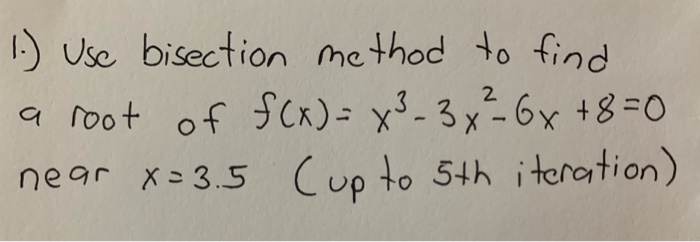 1.) Use bisection method to find
a root of f(x) = x³ - 3x² - 6x + 8 = 0
near x = 3.5 (up to 5th iteration)